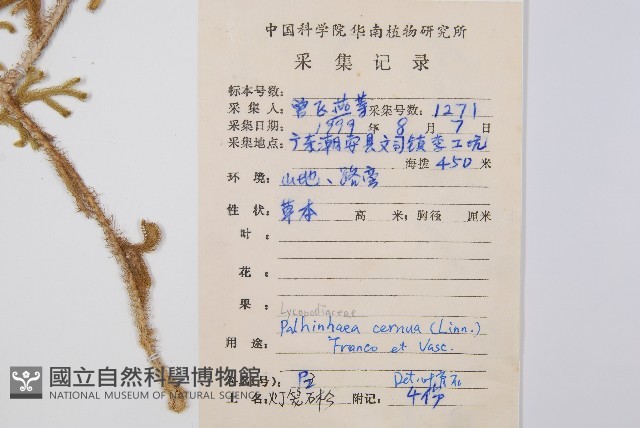 中国科学院华南植物研究所
采集记录
标本号数:
采集人: 曾飞燕等 采集号数: 1271
采集日期: 1999 年 8 月 7 日
采集地点: 广东潮安县文司镇李工坑
海拨 450 米
环境: 山地、路旁
性状: 草本 高 米; 胸径 厘米
叶:
花:
果: Lycopodiaceae
Palhinhaea cernua (Linn.)
用途: Franco et Vasc.
号): P2 Det.
土名: 灯笼石松 附记: 4份
國立自然科學博物館
NATIONAL MUSEUM OF NATURAL SCIENCE